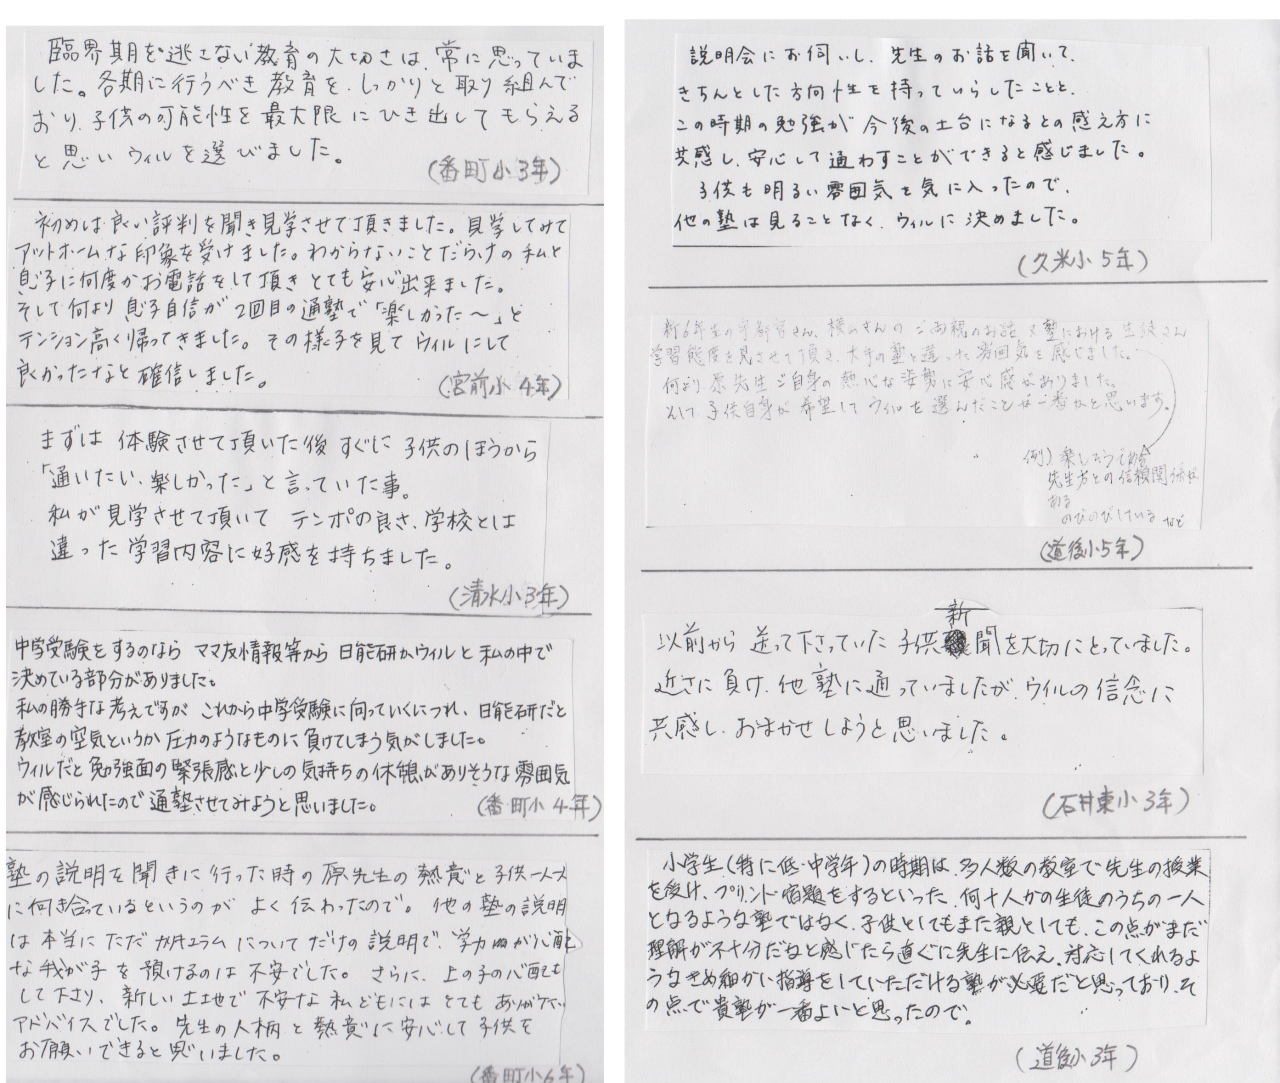 臨界期を逃さない教育の大切さは、常に思っていま
した。各期に行うべき教育を、しっかりと取り組んで
おり、子供の可能性を最大限にひき出してもらえる
と思いウィルを選びました。
(番町小3年)
初めは良い評判を聞き見学させて頂きました。見学してみて
アットホームな印象を受けました。わからないことだらけの私と
息子に何度かお電話をして頂きとても安心出来ました。
そして何より息子自信が2回目の通塾で「楽しかった〜」と
テンション高く帰ってきました。その様子を見てウィルにして
良かったなと確信しました。
(宮前小4年)
まずは体験させて頂いた後すぐに子供のほうから
「通いたい、楽しかった」と言っていた事。
私が見学させて頂いて テンポの良さ、学校とは
違った学習内容に好感を持ちました。
(清水小3年)
中学受験をするのなら ママ友情報等から 日能研かウィルと私の中で
決めている部分がありました。
私の勝手な考えですが これから中学受験に向っていくにつれ、日能研だと
教室の空気というか圧力のようなものに負けてしまう気がしました。
ウィルだと勉強面の緊張感と少しの気持ちの休憩がありそうな雰囲気
が感じられたので通塾させてみようと思いました。
(番町小4年)
塾の説明を聞きに行った時の原先生の熱意と子供一人一人
に向き合っているというのが よく伝わったので。他の塾の説明
は本当にただカリキュラムについてだけの説明で、学力面が心配
な我が子を預けるのは不安でした。さらに、上の子の心配も
して下さり、新しい土地で不安な私どもにはとてもありがたい
アドバイスでした。先生の人柄と熱意に安心して子供を
お願いできると思いました。
(番町小6年)
説明会にお伺いし、先生のお話を聞いて、
きちんとした方向性を持っていらしたことと、
この時期の勉強が今後の土台になるとの考え方に
共感し、安心して通わすことができると感じました。
子供も明るい雰囲気を気に入ったので、
他の塾は見ることなく、ウィルに決めました。
(久米小5年)
新6年生の宇都宮さん、横山さんのご両親のお話や塾における生徒さん
学習態度を見させて頂き、大手の塾と違った雰囲気を感じました。
何より原先生ご自身の熱心な姿勢に安心感がありました。
そして子供自身が希望してウィルを選んだことが一番かと思います。
例)楽しそうである
先生方との信頼関係が
ある
のびのびしている など
(道後小5年)
以前から送って下さっていた子供新聞を大切にとっていました。
近さに負け、他塾に通っていましたが、ウィルの信念に
共感し、おまかせしようと思いました。
(石井東小3年)
小学生(特に低・中学年)の時期は、多人数の教室で先生の授業
を受け、プリント宿題をするといった、何十人かの生徒のうちの一人
となるような塾ではなく、子供としてもまた親としても、この点がまだ
理解が不十分だなと感じたら直ぐに先生に伝え、対応してくれるよ
うなきめ細かい指導をしていただける塾が必要だと思っており、そ
の点で貴塾が一番よいと思ったので。
(道後小3年)